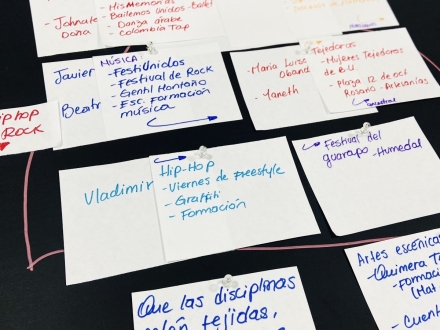 - Johnate
Dora
- HisMemorias
- Bailemos Unidos ballet
- Danza árabe
- Colombia Tap
Javier
Beatr
MÚSICA:
- FestiUnidos
- Festival de Rock
- Gentil Montaño
- Esc. Formación
música
- Maria Luisa
Oband
- Yaneth
Tejedoras
- Mujeres Tejedoras
de B.U.
- Plaza 12 de oct
Rosario - Artesanías
hip hop
ROCK
Vladimir
Hip-Hop
- Viernes de Freestyle
- Graffiti
- Formación
Festival del
guarapo - Humedal
Artes escénicas
- Quimera T
- Formació
(Mat
- Cuent
Que las disciplinas
estén tejidas,